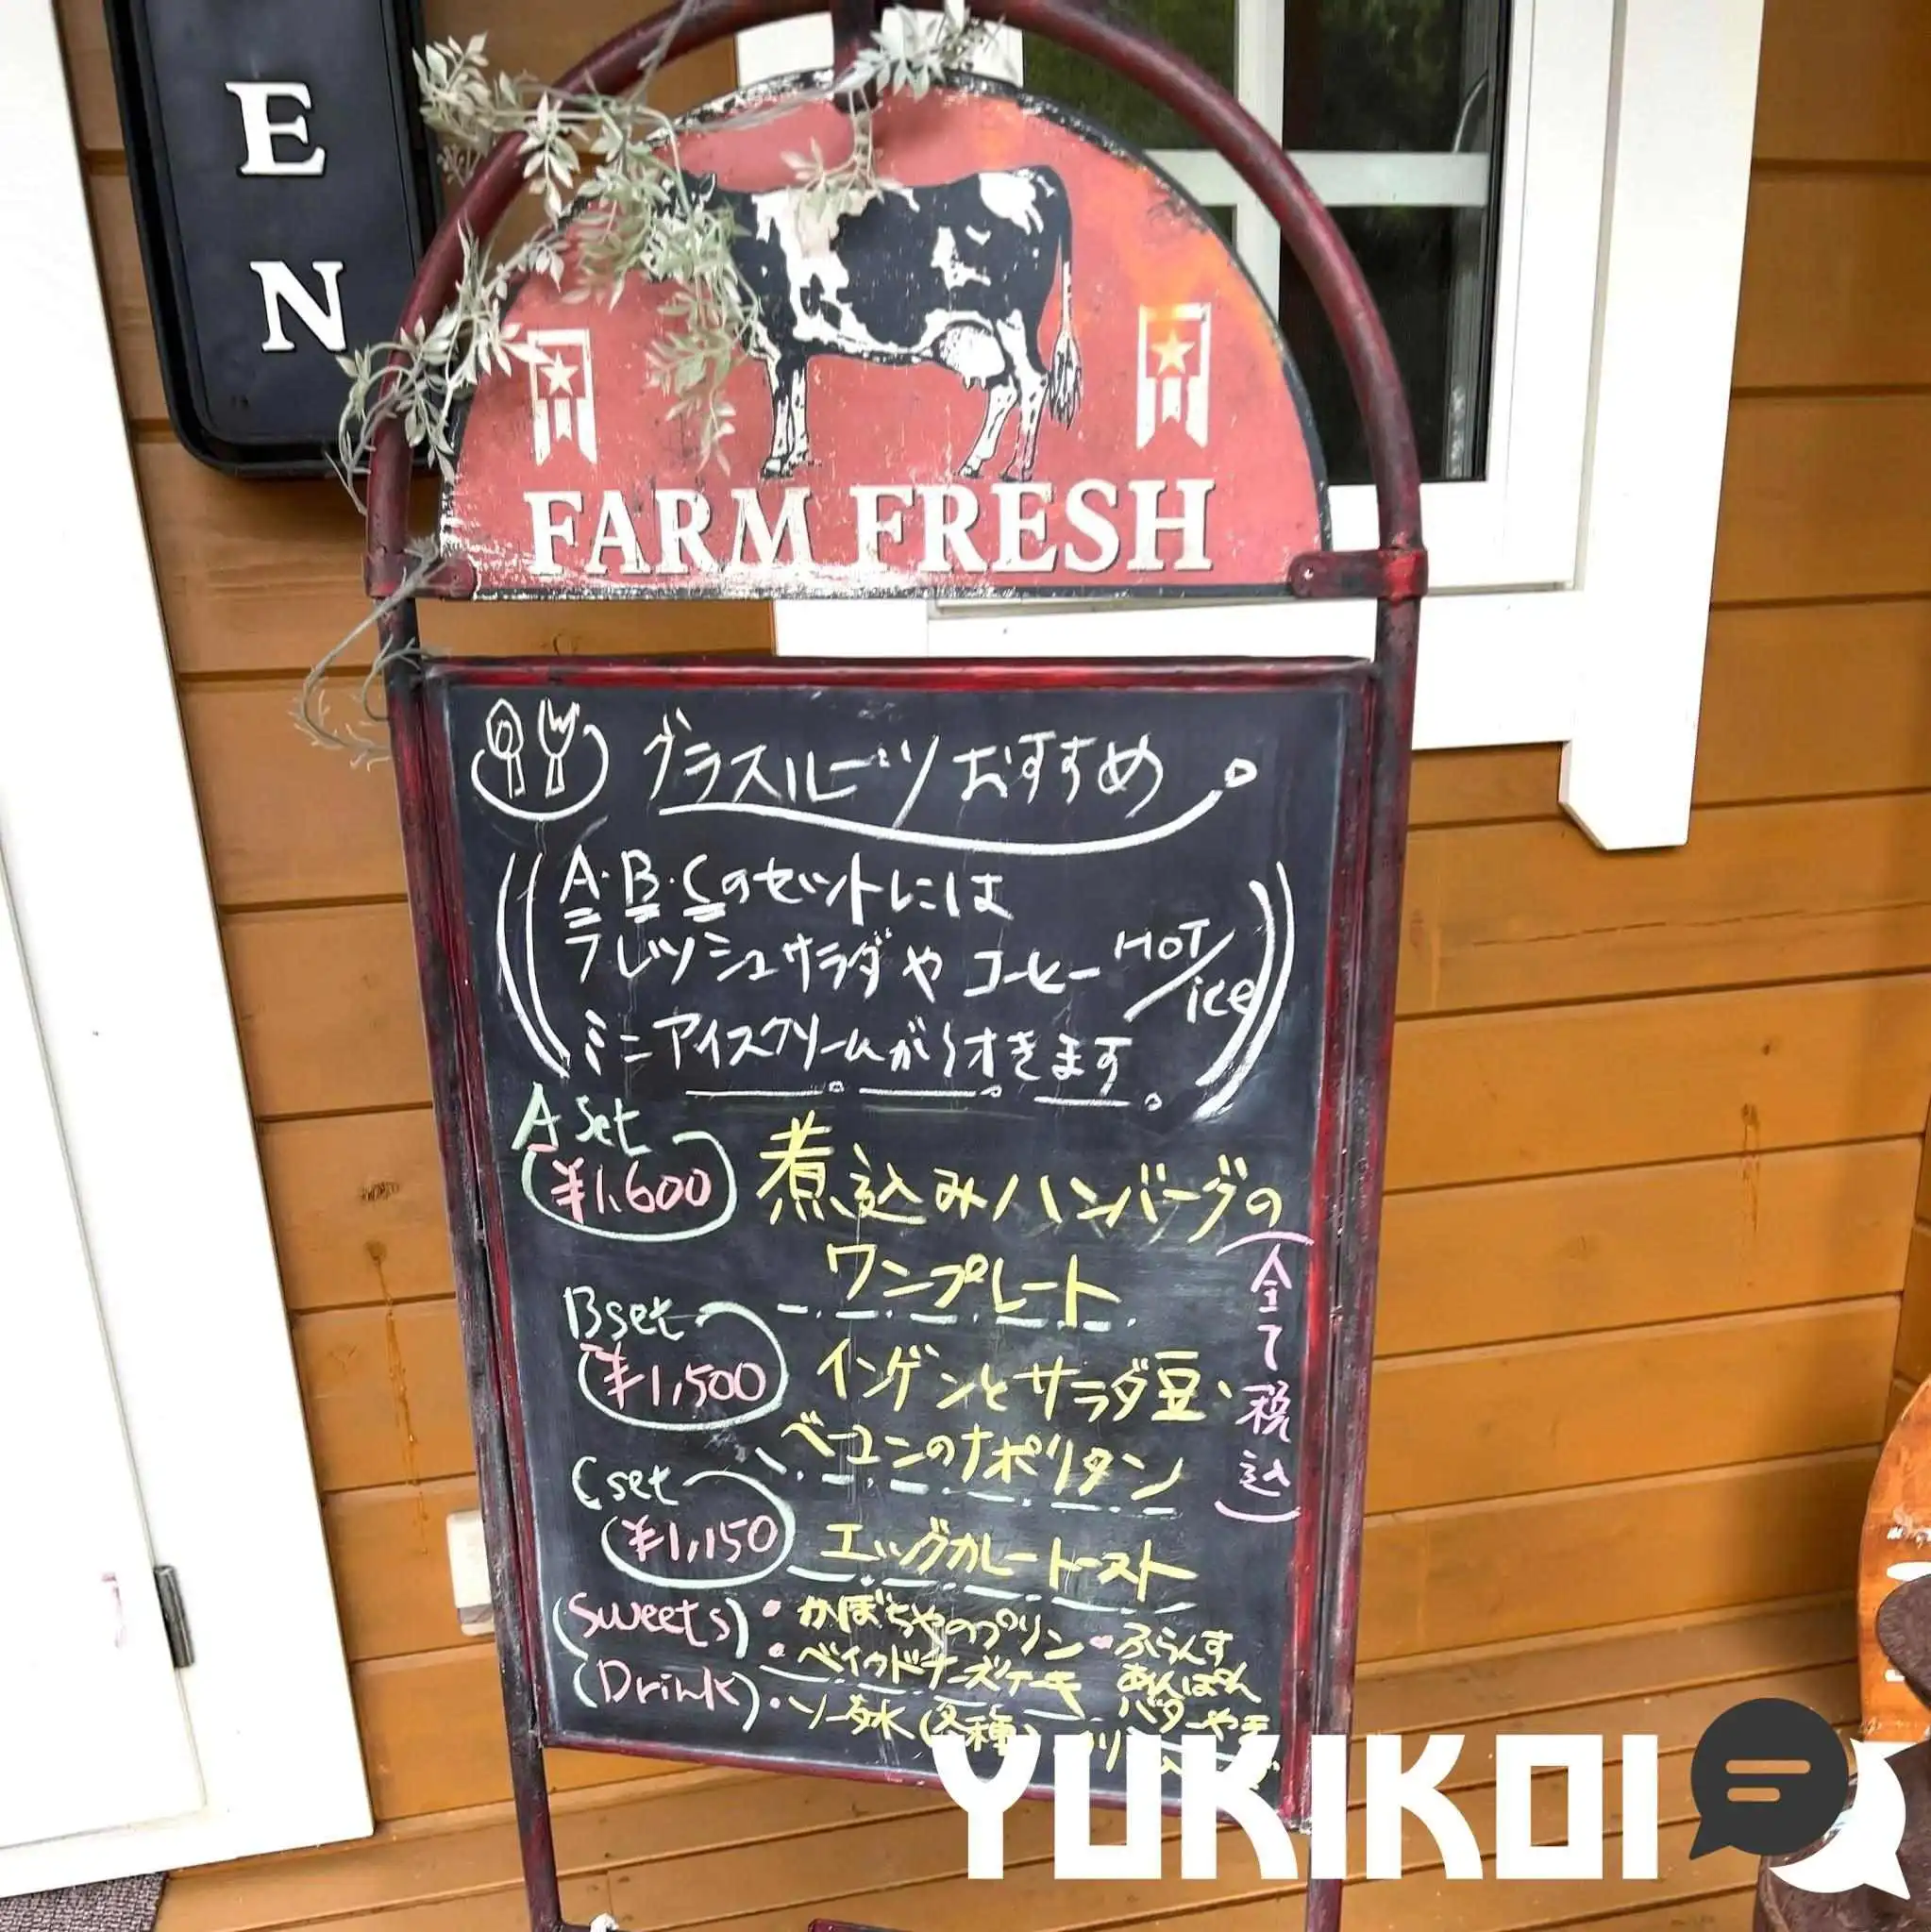 E
N
FARM FRESH
グラスルーツおすすめ
A・B・Cのセットには
フレッシュサラダや コーヒー HOT/ice
ミニアイスクリームが付きます
A set
¥1,600
煮込みハンバーグの
ワンプレート
B set
¥1,500
インゲンとサラダ豆、
ベーコンのナポリタン
C set
¥1,150
エッグカレートースト
(全て税込)
(Sweets)
・かぼちゃのプリン
・ベイクドチーズケーキ
・ふらんす
あんぱん
バター
(Drink)
・ソーダ水(各種)
YUKIKOI